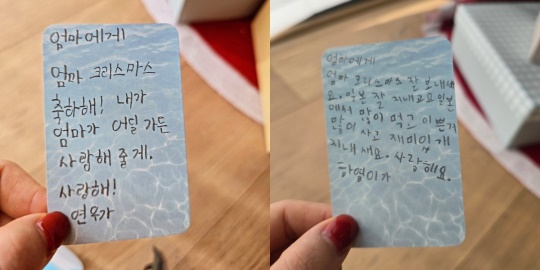 엄마에게
엄마 크리스마스
축하해! 내가
엄마가 어딜 가든
사랑해 줄게.
사랑해!
연욱가
엄마에게
엄마 크리스마스 잘 보내세
요. 일본 잘 지내고요 일본
에서 많이 먹고 이쁜거
많이 사고 재미있게
지내세요. 사랑해요.